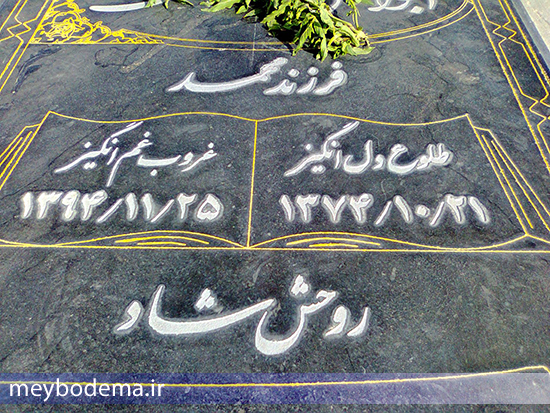 فرزند محمد
طلوع دل انگیز
۱۳۷۴/۱۰/۲۱
غروب غم انگیز
۱۳۹۴/۱۱/۲۵
روحش شاد
meybodema.ir